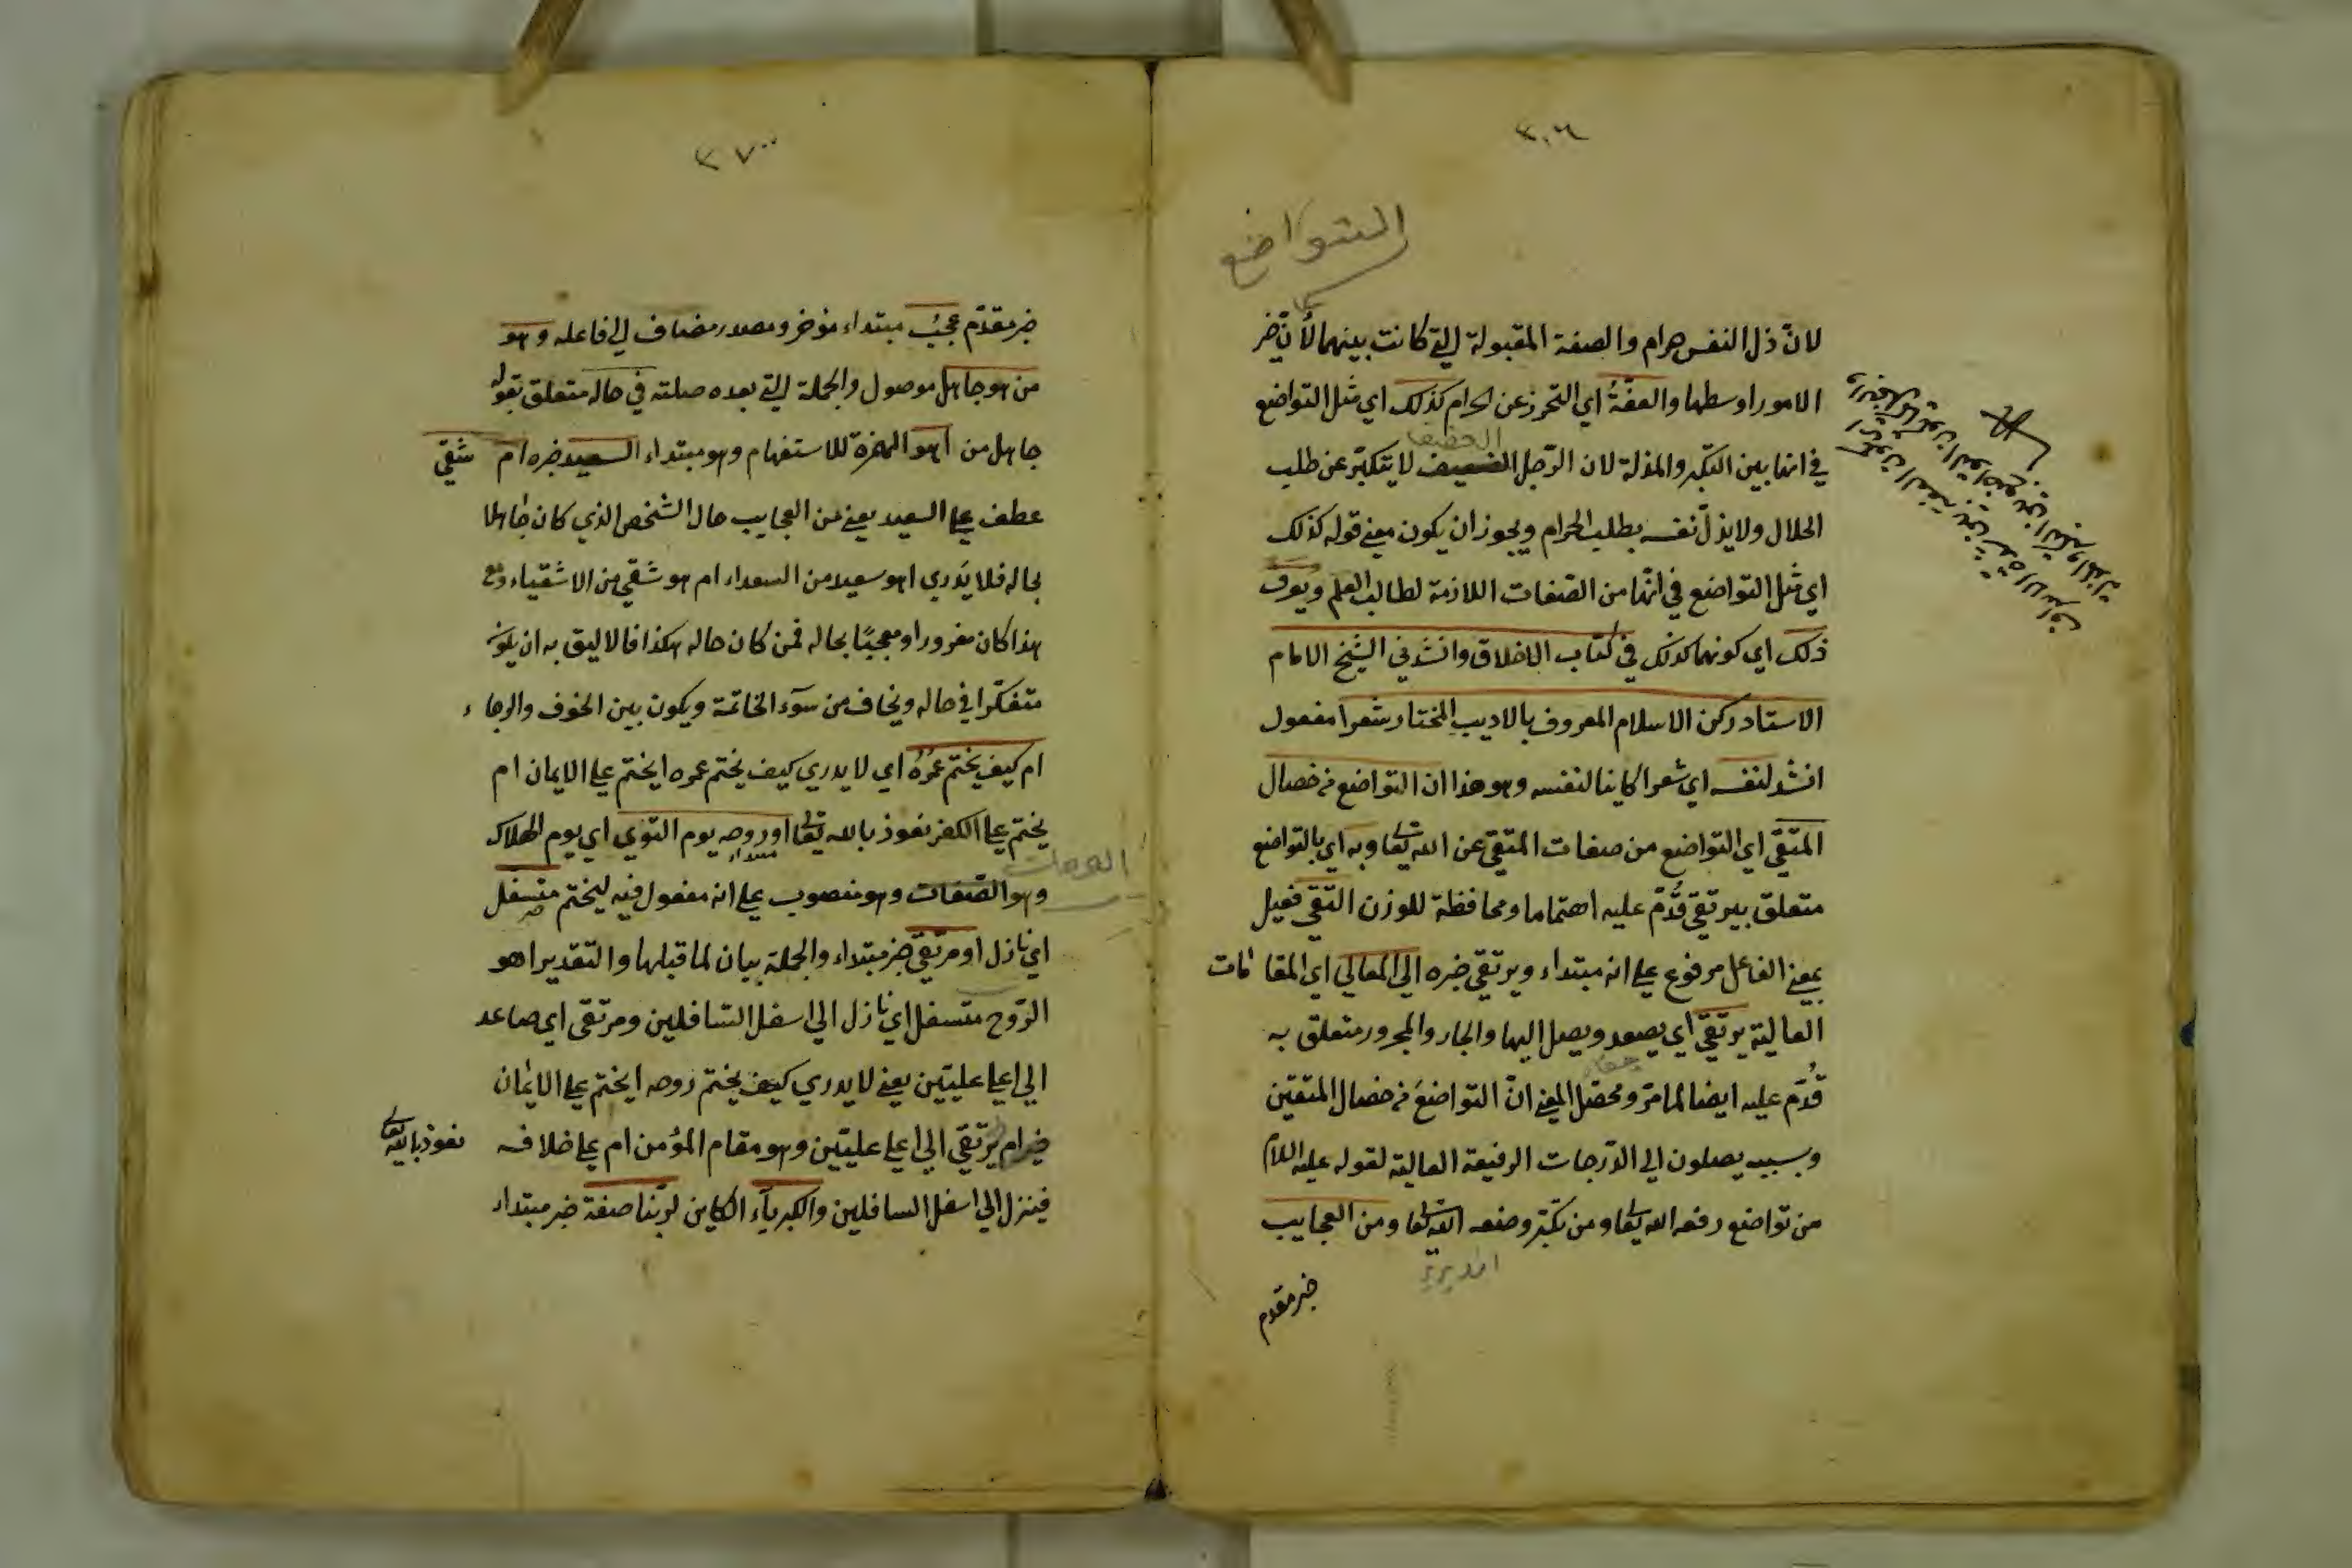 التواضع
لانّ ذل النفس حرام والصفة المقبولة التي كانت بينهما لأنّ خير
الامور اوسطها والعفّةُ اي التحرز عن الحرام كذلك اي مثل التواضع
في انها بين التكبّر والمذلة لان الرّجل لا يتكبّر عن طلب
الحلال ولا يذلّ نفسه بطلب الحرام ويجوز ان يكون معنى قوله كذلك
اي مثل التواضع في انّها من الصّفات اللازمة لطالب العلم ويعرف
ذلك اي كونهما كذلك في كتاب الاخلاق وانشدني الشيخ الامام
الاستاد ركن الاسلام المعروف بالاديب المختار شعرا مفعول
انشد لنفسه اي شعرا كاينا لنفسه وهو هذا ان التواضع من خصال
المتّقي اي التواضع من صفات المتّقي عن الله تعالى وبه اي بالتواضع
متعلق بيرتقي قُدّم عليه اهتماما ومحافظة للوزن التّقي فعيل
بمعنى الفاعل مرفوع على انه مبتداء ويرتقي خبره الى المعالي اي المقامات
العالية يرتقي اي يصعد ويصل اليها والجار والمجرور متعلق به
قُدّم عليه ايضا لما مرّ ومحصّل المعنى انّ التواضعَ من خصال المتّقين
وبسببه يصلون الى الدّرجات الرفيعة العالية لقوله عليه السلام
من تواضع رفعه الله تعالى ومن تكبّر وضعه الله تعالى ومن العجايب
خبر مقدم
خبر مقدّم عجبُ مبتداء مؤخر ومصدر مضاف الى فاعله وهو
من هو جاهل موصول والجملة التي بعده صلته في حاله متعلق بقوله
جاهل من اهو الهمزة للاستفهام وهو مبتداء السعيد خبره ام شقي
عطف على السعيد يعني من العجايب حال الشخص الذي كان جاهلا
بحاله فلا يَدري اهو سعيد من السعداء ام هو شقي من الاشقياء ومع
هذا كان مغرورا ومعجبًا بحاله فمن كان حاله هكذا فالاليق به ان يكون
متفكّرا في حاله ويخاف من سوء الخاتمة ويكون بين الخوف والرجاء
ام كيف يختم عمرُهُ اي لا يدري كيف يختم عمره ايختم على الايمان ام
يختم على الكفر نعوذ بالله تعالى او روحه يوم التوي اي يوم الهلاك
مبتداء
وهو الصّفات وهو منصوب على انه مفعول فيه ليختم متسفل
اي نازل او مرتقي خبر مبتداء والجملة بيان لما قبلها والتقدير اهو
الرّوح متسفل اي نازل الى اسفل السّافلين ومرتقى اي صاعد
الى اعلى عليّين يعني لا يدري كيف يختم روحه ايختم على الايمان
خبر ام يرتقي الى اعلى عليّين وهو مقام المؤمن ام على خلافه نعوذ بالله تعالى
فينزل الى اسفل السافلين والكبرياء الكاين لربّنا صفة خبر مبتداء